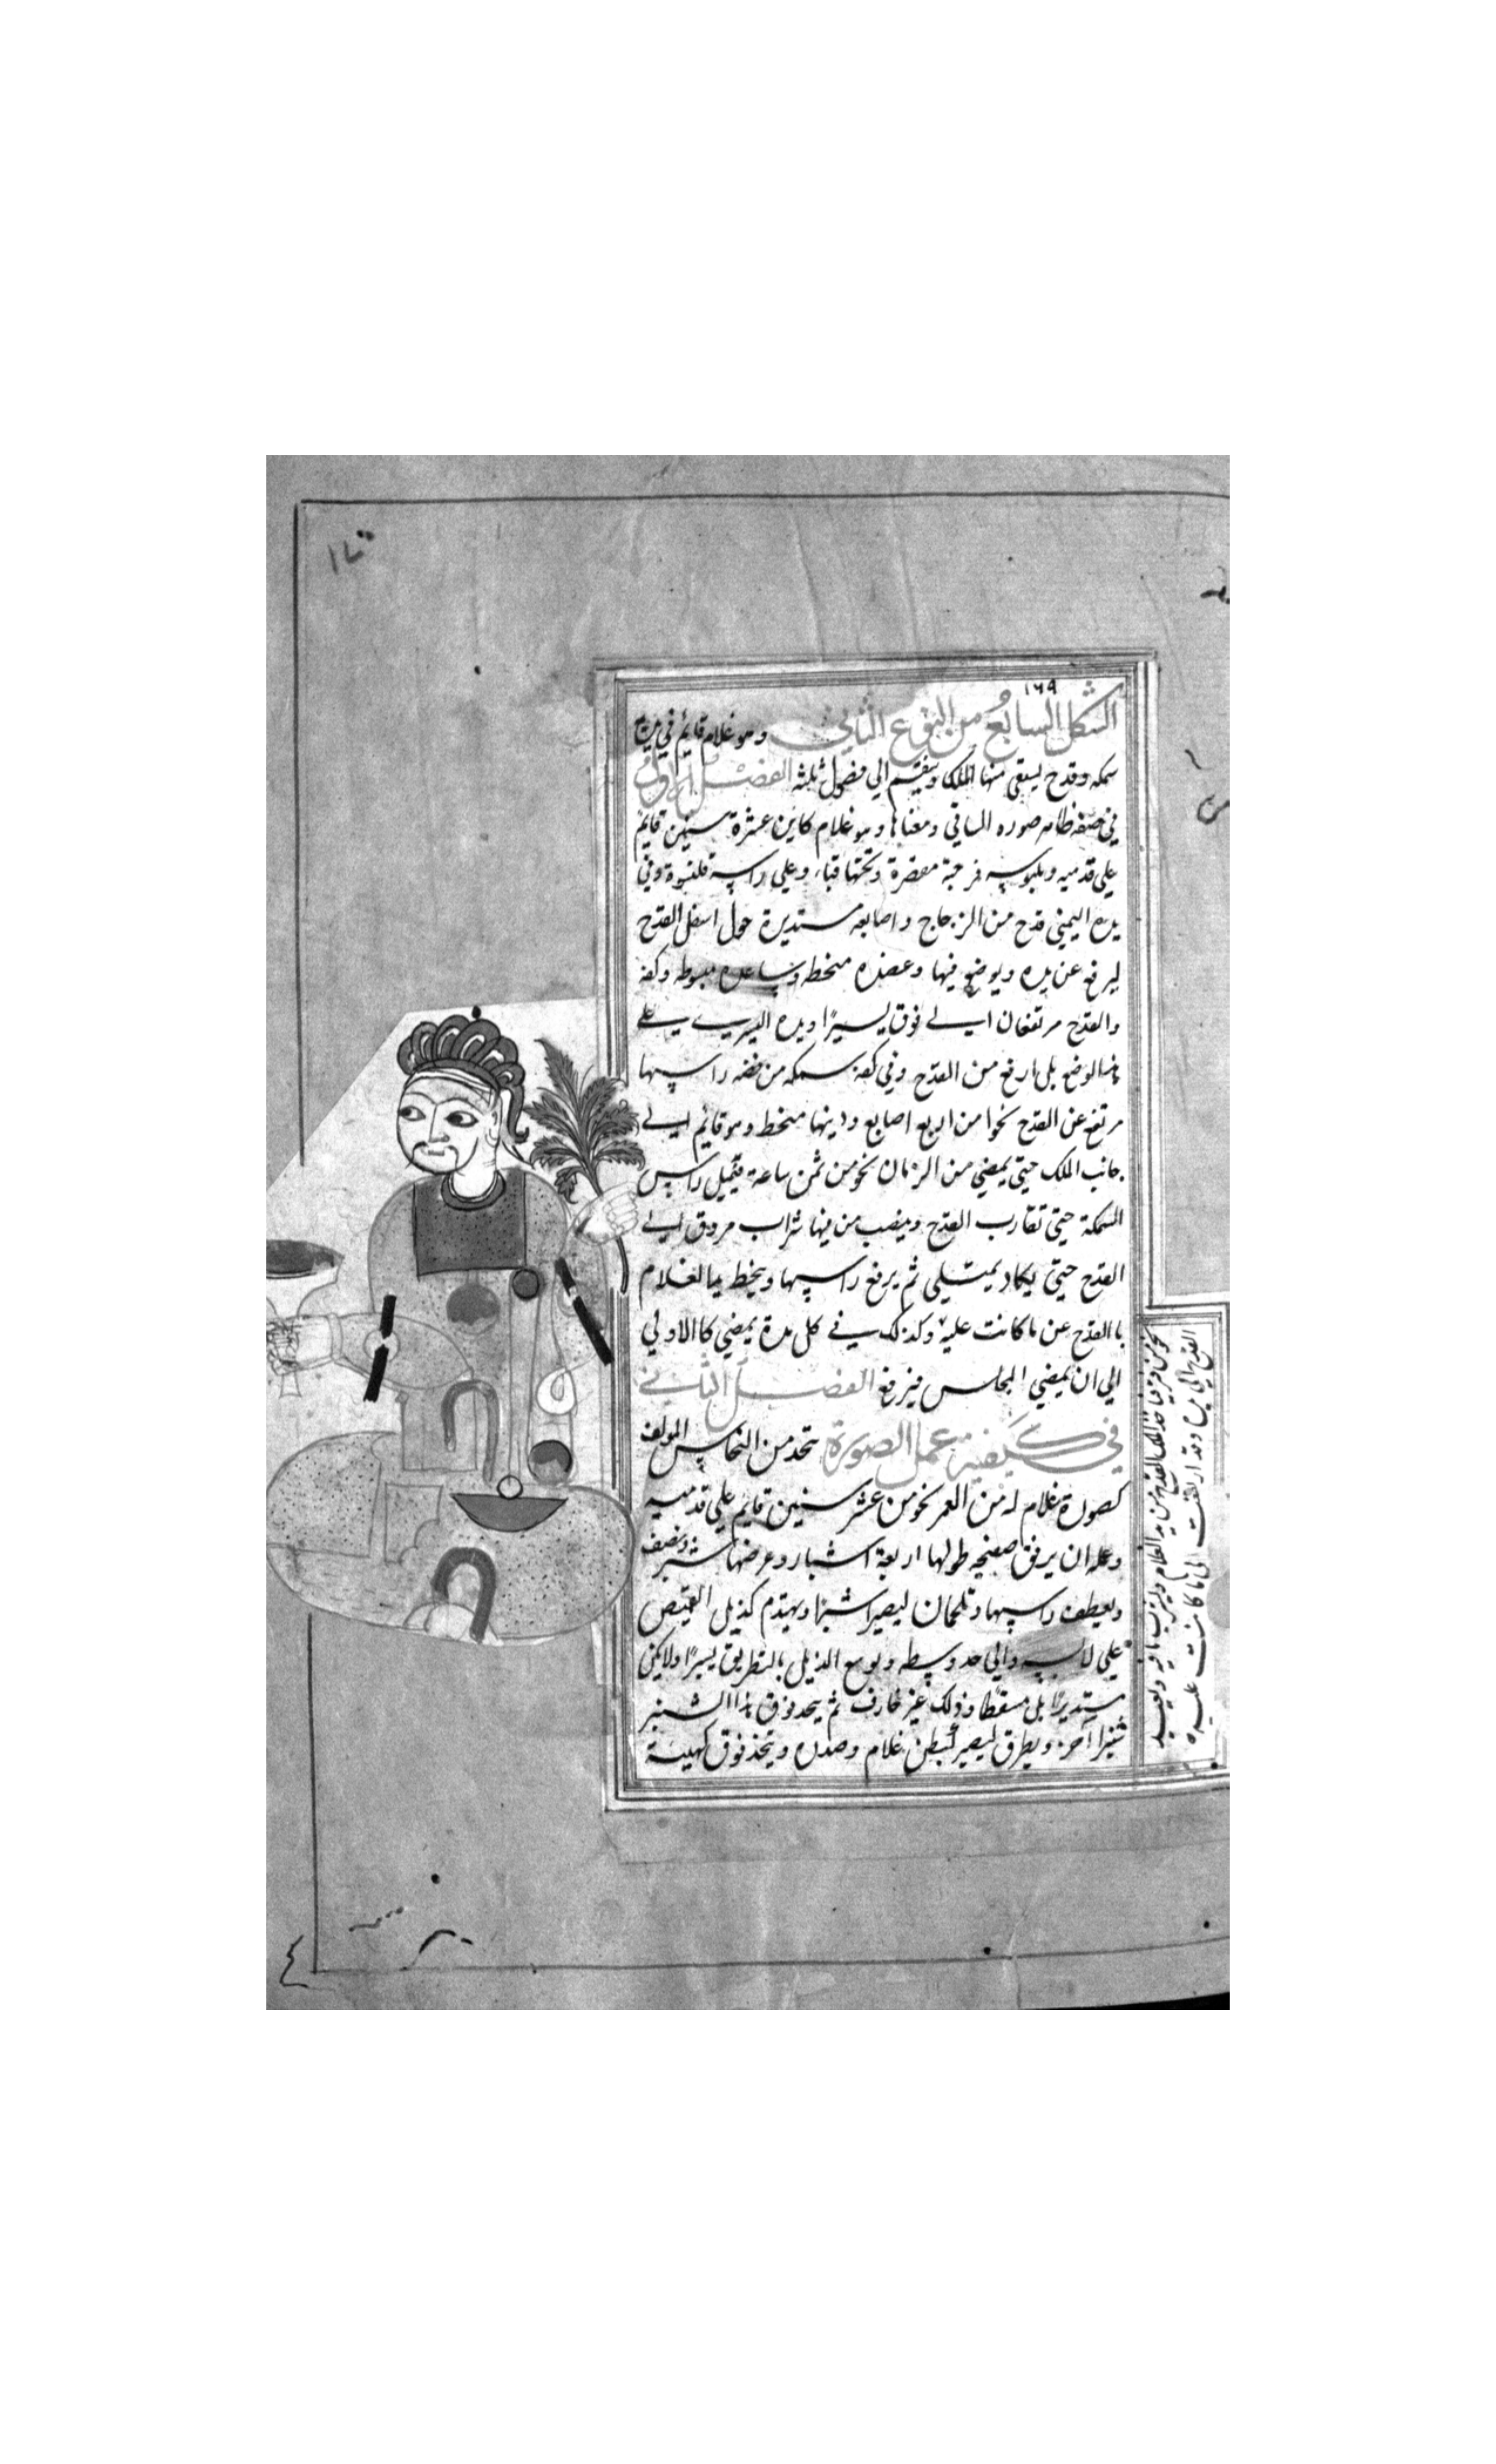 ١٦٩
الشكل السابع من النوع الثاني وهو غلام قايم في يده
سمكه وقدح ليسقي منها الملك وينقسم الي فصول ثلثه الفصل الاول
في صفة ظاهر صوره الساقي ومعناها وهو غلام كابن عشرة سنين قايم
علي قدميه وملبوسه فرجية مقصرة وتحتها قباء وعلي راسه قلنسوة وفي
يده اليمني قدح من الزجاج واصابعه مستديرة حول اسفل القدح
ليرفع عن يده ويوضع فيها وعضده منخطه وساعده مبسوطه وكفه
والقدح مرتفعان الي فوق يسيرا ويده اليسري علي
هذا الوضع بل ارفع من القدح وفي كفه سمكه من فضه راسها
مرتفع عن القدح نحوا من اربع اصابع وذنبها منخط وهو قايم الي
جانب الملك حتي يمضي من الزمان نحو من ثمن ساعة فتميل راس
السمكة حتي تقارب القدح وينصب من فيها شراب مروق الي
القدح حتي يكاد يمتلي ثم يرفع راسها وينخط يد الغلام
باالقدح عن ما كانت عليه وكذلك في كل مدة يمضي كاالاولي
الي ان يمضي المجلس فيرفع الفصل الثاني
في كيفية عمل الصورة يتخد من النحاس المولف
كصورة غلام له من العمر نحو من عشر سنين قايم علي قدميه
وعمله ان يرفق صفيحه طولها اربعة اشبار وعرضها شبر ونصف
ويعطف راسها وتلحمان ليصيرا شبرا ويهندم كذيل القميص
علي لابسه والي حد وسطه ويوسع الذيل بالتطريق يسيرا ولا يكن
مستديرا بل مسقطا وذلك غير خارف ثم يتخد فوق هذا الشبر
شبرا آخر ويطرق ليصير كبطن غلام وصدره ويتخذ فوق كهيئة
القدح الي يده وقد ارتفعت الي ما كانت عليه